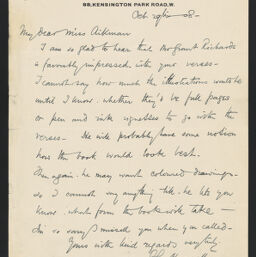 88, KENSINGTON PARK ROAD, W.
Oct 29th 08 -
My dear Miss Aikman
I am so glad to hear that Mr Grant Richards
is favourably impressed with your verses -
I cannot say how much the illustrations would be
until I know whether they'd be full pages
or pen and ink vignettes to go with the
verses - He will probably have some notion
how the book would look best.
Then again - he may want coloured drawings -
so I cannot say anything till he lets you
know what form the book will take -
I'm so sorry I missed you when you called -
Yours with kind regards very truly